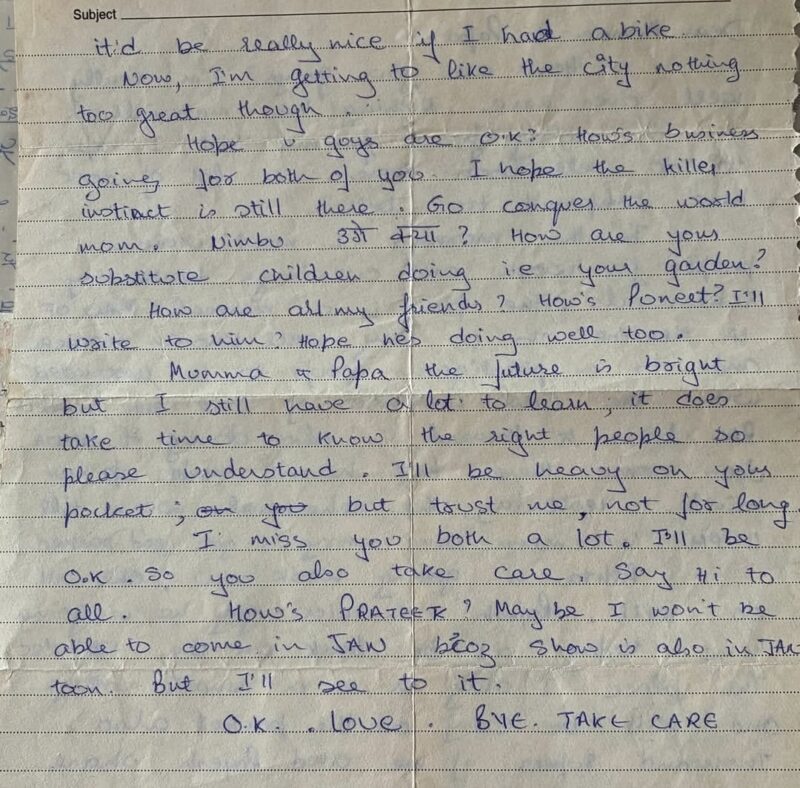 Subject
it'd be really nice if I had a bike
Now, I'm getting to like the city nothing
too great though.
Hope u guys are O.K? How's business
going, for both of you. I hope the killer
instinct is still there. Go conquer the world
mom. Nimbu उगे क्या ? How are your
substitute children doing i.e your garden?
How are all my friends? How's Poneet? I'll
write to him? Hope he's doing well too.
Momma & Papa the future is bright
but I still have a lot to learn; it does
take time to know the right people so
please understand. I'll be heavy on your
pocket; on you but trust me, not for long.
I miss you both a lot. I'll be
O.K. So you also take care. Say Hi to
all. How's PRATEEK? May be I won't be
able to come in JAN b'coz show is also in JAN
toon. But I'll see to it.
O.K. . Love . BYE. TAKE CARE